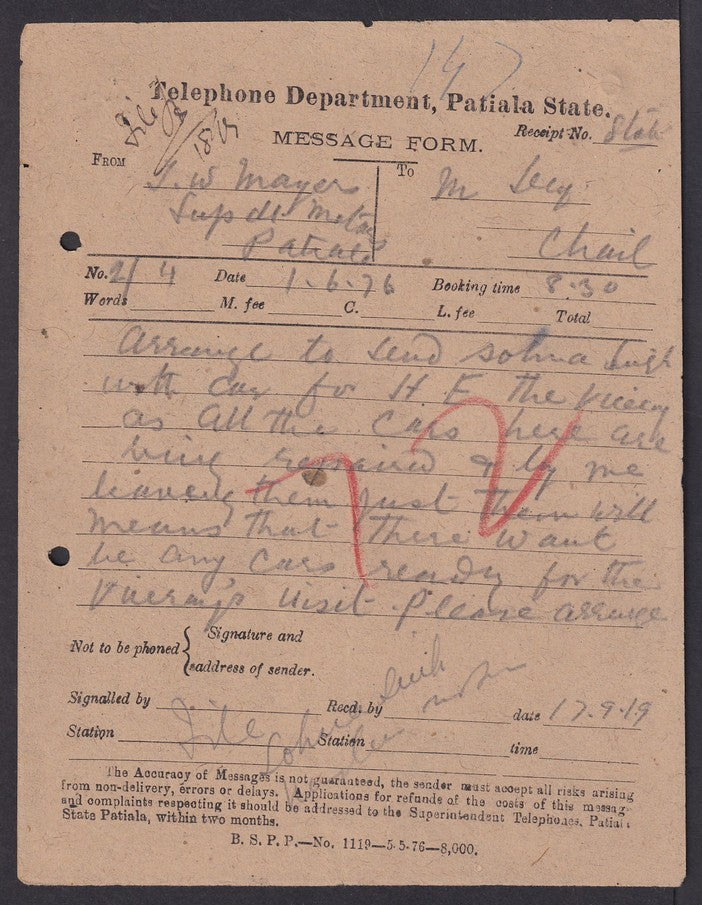 147
Telephone Department, Patiala State.
File
18/9
Receipt No. State
MESSAGE FORM.
FROM
To
J. W Mayers
Supdt Motors
Patiala
M Secy
Chail
No. 2/4 Date 1.6.76 Booking time 8.30
Words M. fee C. L. fee Total
Arrange to send Sohna Singh
with car for H. E. the Viceroy
as all the cars here are
being repaired & by me
leaving them just them will
means that there wont
be any cars ready for the
Viceroy's visit. Please arrange
72
Not to be phoned { Signature and
address of sender.
Signalled by Recd. by date 17.9.19
Station Station time
File
Sohna Singh
motor
The Accuracy of Messages is not guaranteed, the sender must accept all risks arising
from non-delivery, errors or delays. Applications for refunds of the costs of this message
and complaints respecting it should be addressed to the Superintendent Telephones, Patiala
State Patiala, within two months.
B. S. P. P.—No. 1119—5-5-76—8,000.